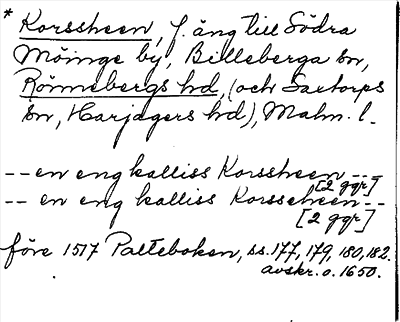 * Korssheen, f. äng till Södra
Möinge by, Billeberga sn,
Rönnebergs hd, (och Saxtorps
sn, Harjagers hd), Malm. l.
-- en eng kalliss Korssheen --
[2 ggr]
-- en eng kalliss Korsseheen --
[2 ggr]
före 1517 Palteboken, ss. 177, 179, 180, 182.
avskr. o. 1650.